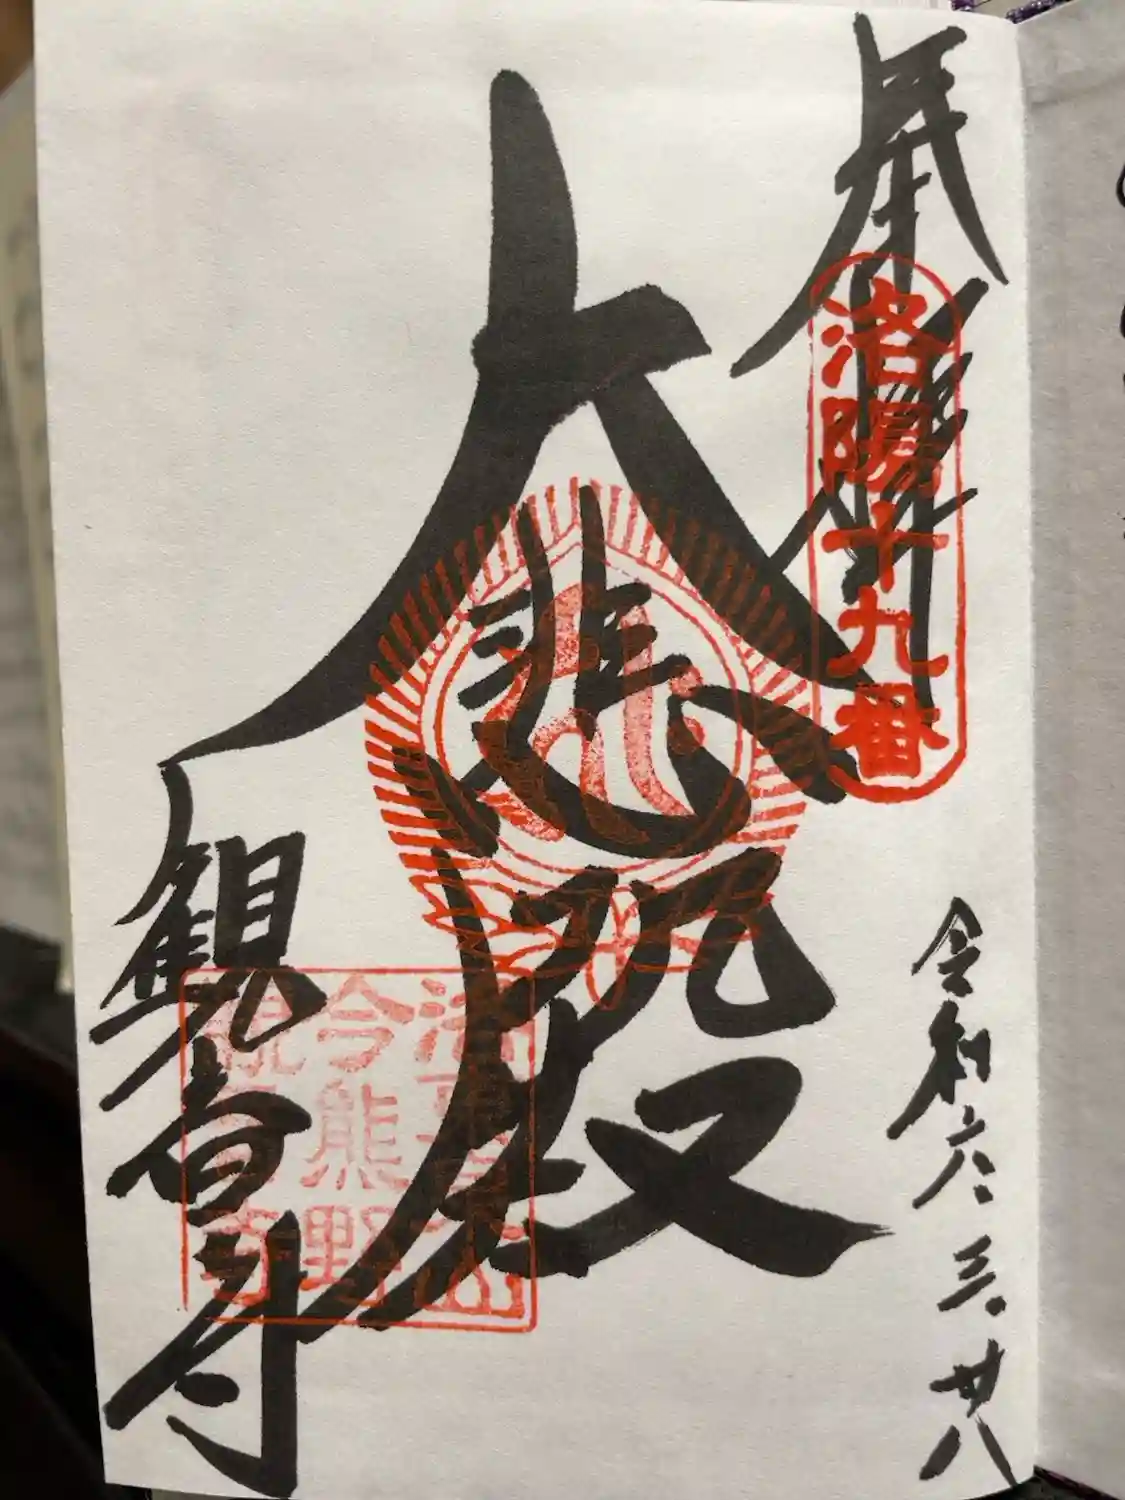 奉拝
洛陽十九番
令和六.三.廿八
大悲殿
洛東
今熊野
観音寺
観音寺